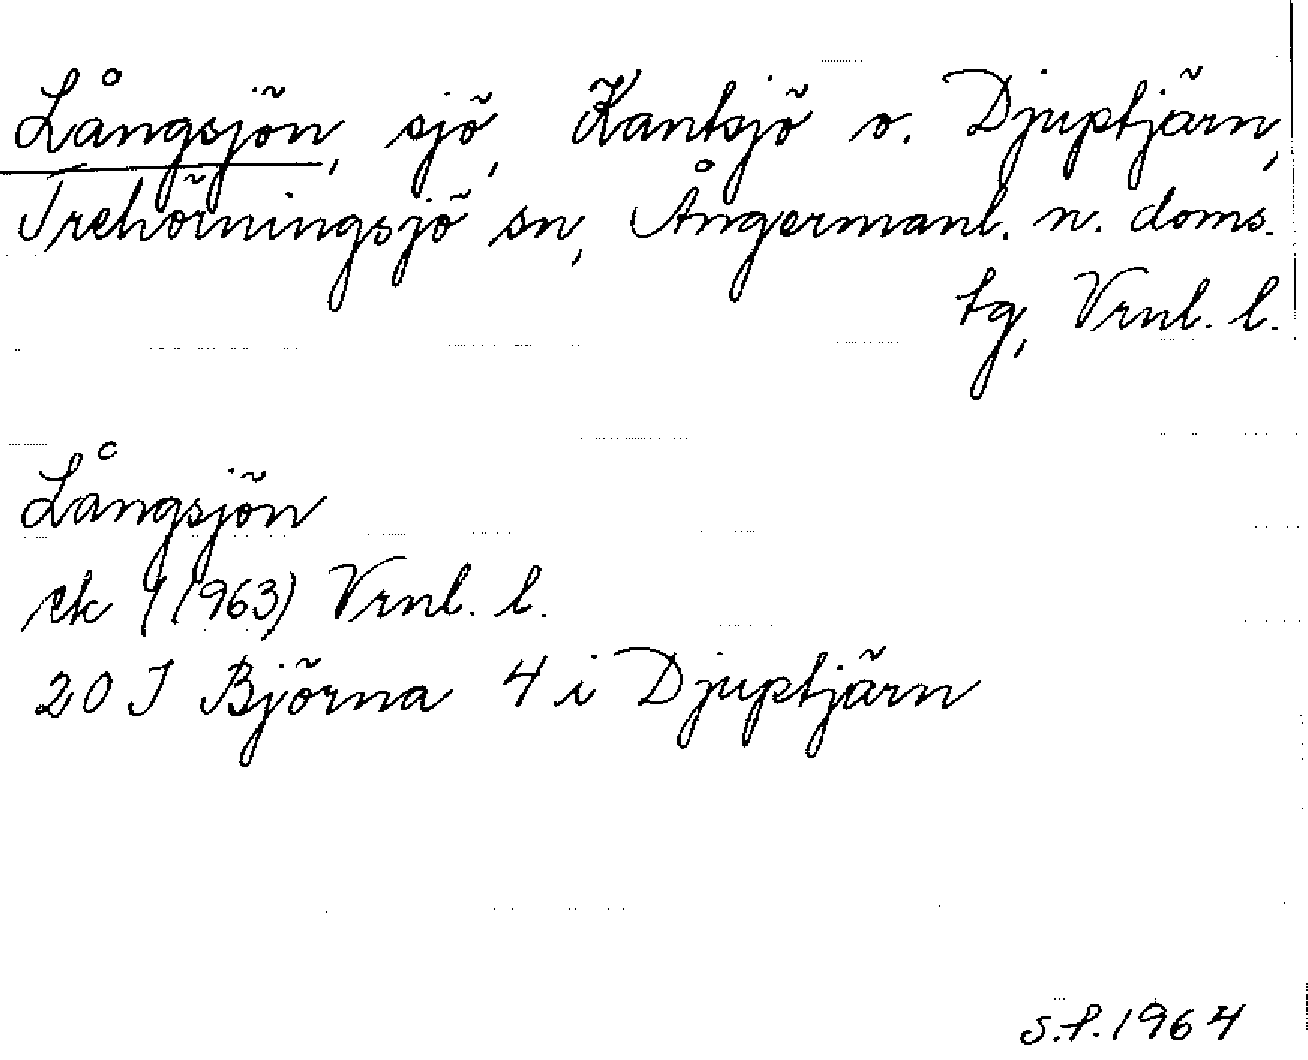 Långsjön, sjö, Kantsjö o. Djuptjärn,
Trehörningsjö sn, Ångermanl. n. doms.
tg, Vrnl. l.
Långsjön
ek (1963) Vrnl. l.
20 I Björna 4 i Djuptjärn
S.P. 1964